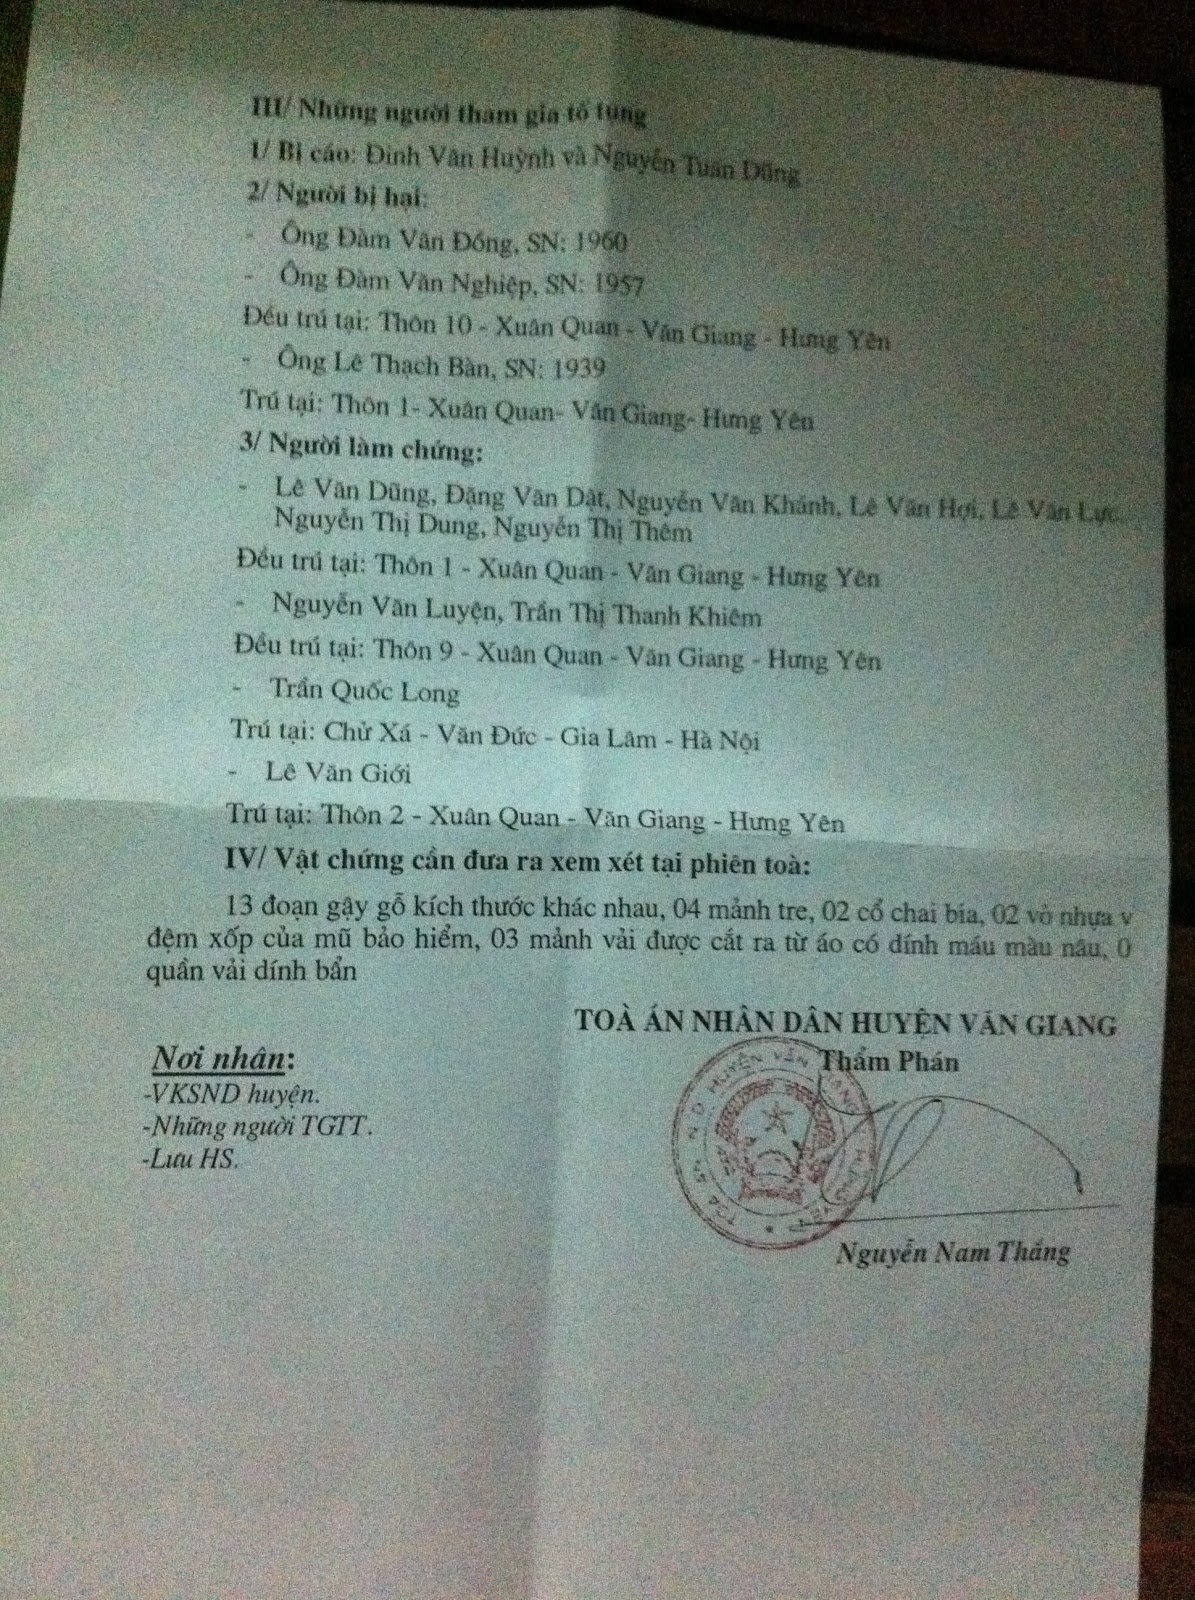 III/ Những người tham gia tố tụng
1/ Bị cáo: Đinh Văn Huỳnh và Nguyễn Tuấn Dũng
2/ Người bị hại:
- Ông Đàm Văn Đồng, SN: 1960
- Ông Đàm Văn Nghiệp, SN: 1957
Đều trú tại: Thôn 10 - Xuân Quan - Văn Giang - Hưng Yên
- Ông Lê Thạch Bàn, SN: 1939
Trú tại: Thôn 1- Xuân Quan- Văn Giang- Hưng Yên
3/ Người làm chứng:
- Lê Văn Dũng, Đặng Văn Dật, Nguyễn Văn Khánh, Lê Văn Hợi, Lê Văn Lực,
Nguyễn Thị Dung, Nguyễn Thị Thêm
Đều trú tại: Thôn 1 - Xuân Quan - Văn Giang - Hưng Yên
- Nguyễn Văn Luyện, Trần Thị Thanh Khiêm
Đều trú tại: Thôn 9 - Xuân Quan - Văn Giang - Hưng Yên
- Trần Quốc Long
Trú tại: Chử Xá - Văn Đức - Gia Lâm - Hà Nội
- Lê Văn Giới
Trú tại: Thôn 2 - Xuân Quan - Văn Giang - Hưng Yên
IV/ Vật chứng cần đưa ra xem xét tại phiên toà:
13 đoạn gậy gỗ kích thước khác nhau, 04 mảnh tre, 02 cổ chai bia, 02 vỏ nhựa v
đệm xốp của mũ bảo hiểm, 03 mảnh vải được cắt ra từ áo có dính máu màu nâu, 0
quần vải dính bẩn
TOÀ ÁN NHÂN DÂN HUYỆN VĂN GIANG
Thẩm Phán
Nơi nhận:
-VKSND huyện.
-Những người TGTT.
-Lưu HS.
TOÀ ÁN N D HUYỆN VĂN GIANG HƯNG YÊN
Nguyễn Nam Thắng